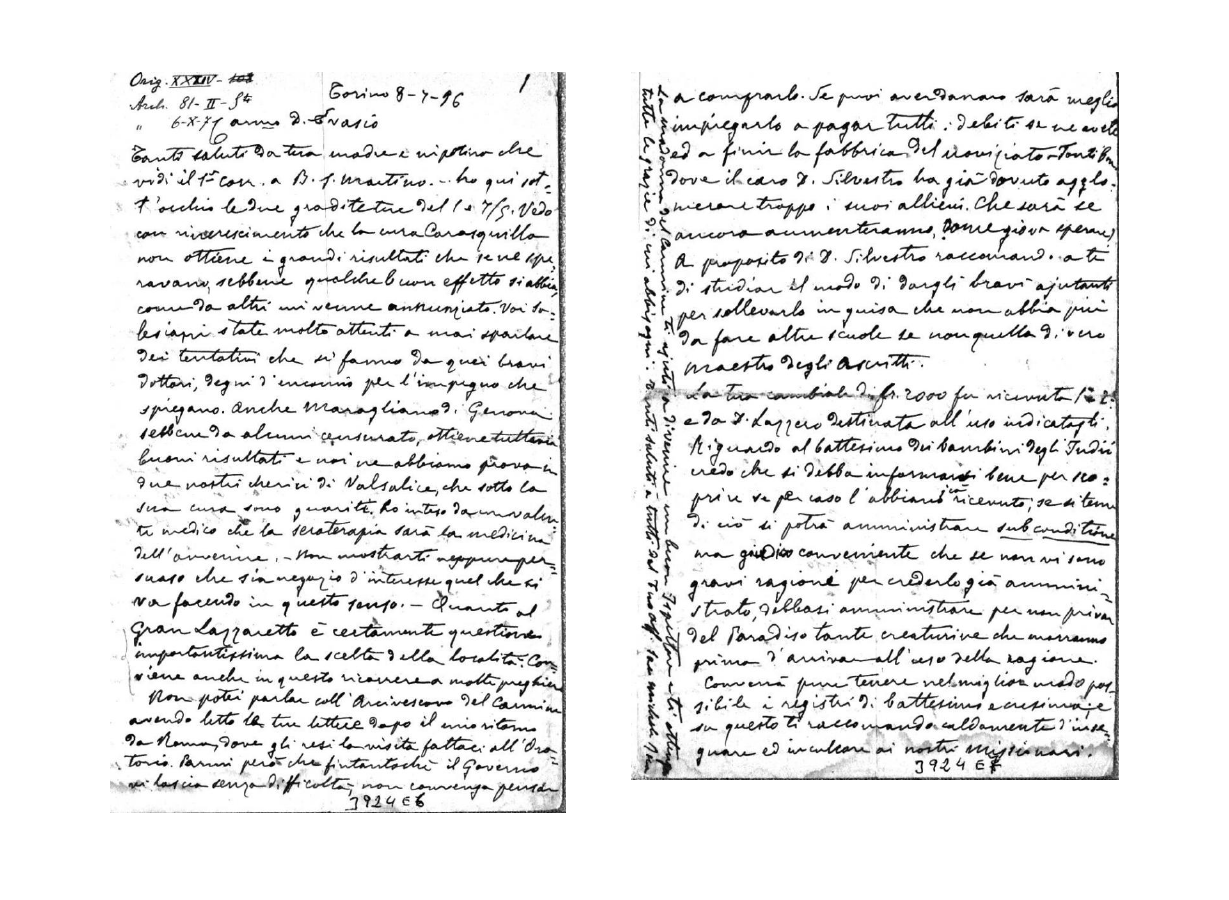 Orig. XXXIV-
Arch. 81-II-5ta
" 6-X-71
1
Torino 8-7-96
Carmo D. Evasio
Tanti saluti da tua madre e nipotina che
vidi il 1° corr. a B. S. Martino. - Ho qui sot=
t'occhio le due gradite tue del 1 e 7/5. Vedo
con rincrescimento che la cura Carasquilla
non ottiene i grandi risultati che se ne spe=
ravano, sebbene qualche buon effetto si abbia,
come da altri mi venne annunziato. Voi Sa=
lesiani state molto attenti a mai sparlare
dei tentativi che si fanno da quei bravi
dottori, degni d'encomio per l'impegno che
spiegano. Anche Maragliano di Genova
sebbene da alcuni censurato, ottiene tuttavia
buoni risultati e noi ne abbiamo prova in
due nostri chierici di Valsalice, che sotto la
sua cura sono guariti. Ho inteso da un valen=
te medico che la sieroterapia sarà la medicina
dell'avvenire. - Non mostrarti neppure per=
suaso che sia negozio d'interesse quel che si
va facendo in questo senso. - Quanto al
Gran Lazzaretto è certamente questione
importantissima la scelta della località. Con=
viene anche in questo ricorrere a molte preghiere
Non potei parlar coll'Arcivescovo del Carmine
avendo letto le tue lettere dopo il mio ritorno
da Roma, dove gli resi la visita fattaci all'Ora=
torio. Parmi però che fintantoché il Governo
vi lascia senza difficoltà, non convenga pensar
3924 E6
a comprarlo. Se puoi aver danaro sarà meglio
impiegarlo a pagar tutti i debiti se ne avete
ed a finir la fabbrica del noviziato a Fontibon
dove il caro D. Silvestro ha già dovuto agglo=
merare troppo i suoi allievi. Che sarà se
ancora aumenteranno, come giova sperare?
A proposito di D. Silvestro raccomando a te
di studiar il modo di dargli bravi ajutanti
per sollevarlo in guisa che non abbia più
da fare altre scuole se non quella di vero
maestro degli Ascritti.
La tua cambiale di fr. 2000 fu ricevuta
e da D. Lazzero destinata all'uso indicatogli.
Riguardo al battesimo dei bambini degli Indii
credo che si debba informarsi bene per sco=
prire se per caso l'abbiano già ricevuto; se si teme
di ciò si potrà amministrare sub conditione
ma giudico conveniente che se non vi sono
gravi ragioni per crederlo già ammini=
strato, debbasi amministrare per non privar
del Paradiso tante creaturine che morranno
prima d'arrivar all'uso della ragione.
Converrà pure tenere nel miglior modo pos=
sibile i registri di battesimi e cresima; e
su questo ti raccomando caldamente d'inse=
gnare ed inculcare ai nostri Missionari.
3924 E7
La Madonna del Carmine ti ajuti a divenire un buon Ispettore e ti ottenga
tutte le grazie di cui abbisogni. Tanti saluti a tutti dal Tuo aff. Sac. Michele Rua